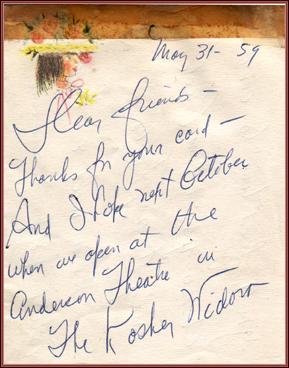 May 31 - 59
Dear friends -
Thanks for your card -
And I hope next October
when we open at the
Anderson Theatre in
The Kosher Widow